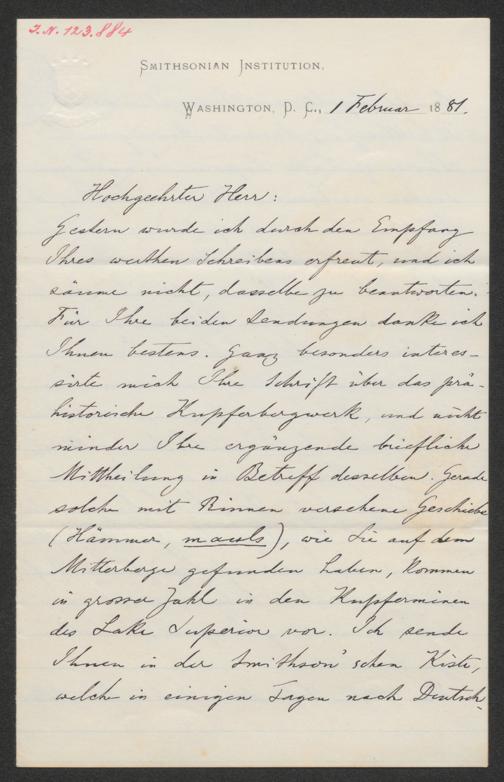 J.N. 123.884
SMITHSONIAN INSTITUTION,
WASHINGTON, D. C., 1 Februar 1881.
Hochgeehrter Herr:
Gestern wurde ich durch den Empfang
Ihres werthen Schreibens erfreut, und ich
säume nicht, dasselbe zu beantworten.
Für Ihre beiden Sendungen danke ich
Ihnen bestens. Ganz besonders interes-
sirte mich Ihre Schrift über das prä-
historische Kupferbergwerk, und nicht
minder Ihre ergänzende briefliche
Mittheilung in Betreff desselben. Gerade
solche mit Rinnen versehene Geschiebe
(Hämmer, mauls), wie Sie auf dem
Mitterberge gefunden haben, kommen
in grosser Zahl in den Kupferminen
des Lake Superior vor. Ich sende
Ihnen in der Smithson'schen Kiste,
welche in einigen Tagen nach Deutsch-